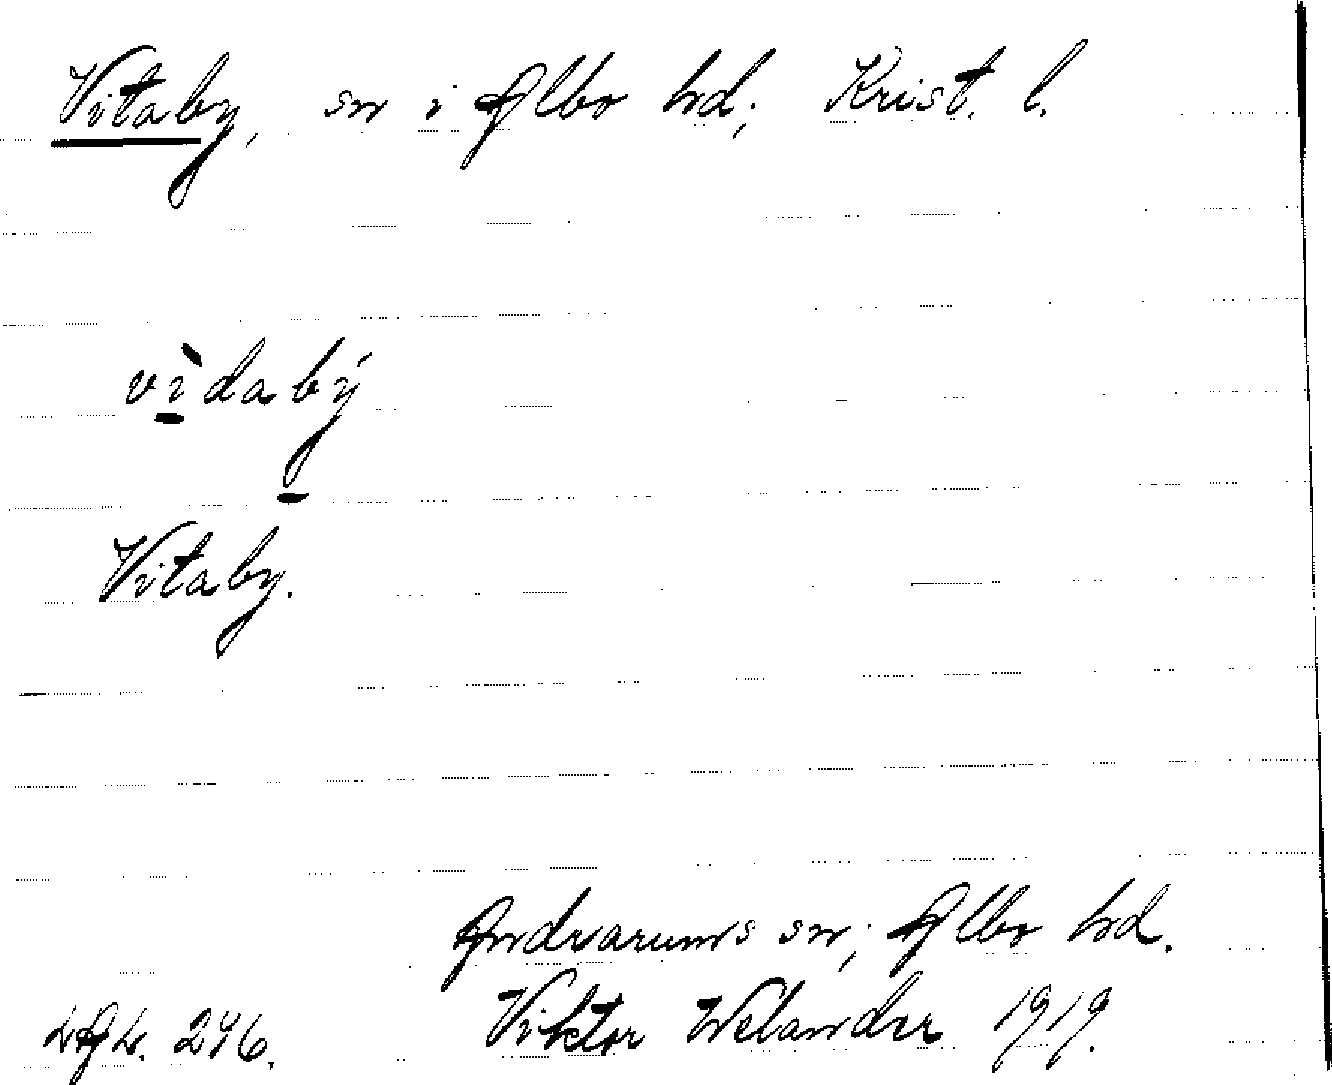 Vitaby, sn i Albo hd; Krist. l.
vì̱dabý̱
Vitaby.
Andrarums sn; Albo hd.
LAL. 246. Viktor Welander 1919.